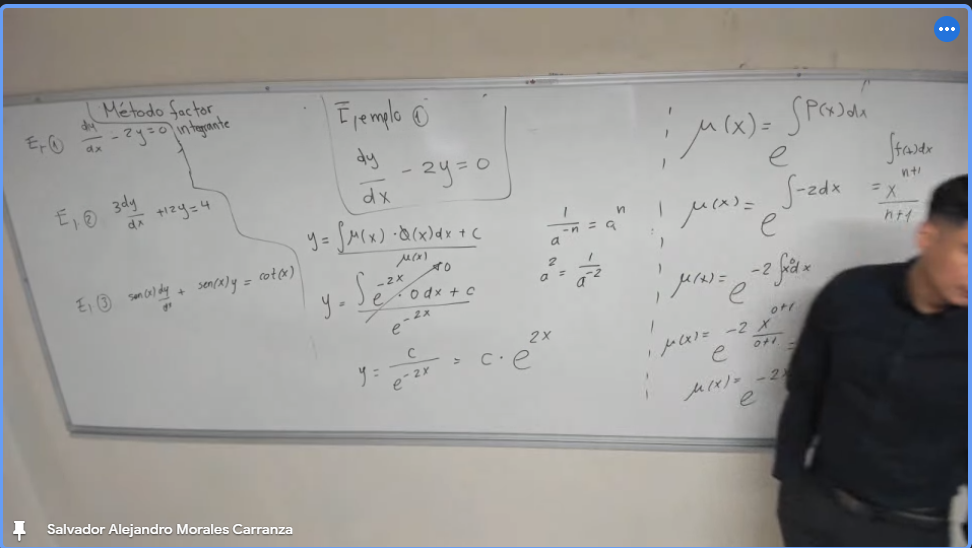 Método factor
integrante
Ej ① dy/dx - 2y = 0
Ej ② 3dy/dx + 12y = 4
Ej ③ sen(x) dy/dx + sen(x)y = cot(x)
Ejemplo ①
dy/dx - 2y = 0
y = ∫μ(x)·Q(x)dx + c / μ(x)
y = ∫e^{-2x}·0dx + c / e^{-2x}
→0
y = c/e^{-2x} = c·e^{2x}
1/a^{-n} = a^n
a^2 = 1/a^{-2}
μ(x) = e^{∫P(x)dx}
μ(x) = e^{∫-2dx}
μ(x) = e^{-2∫x^0dx}
μ(x) = e^{-2 x^{0+1}/0+1} =
μ(x) = e^{-2x}
∫f(x)dx
= x^{n+1}/n+1
Salvador Alejandro Morales Carranza